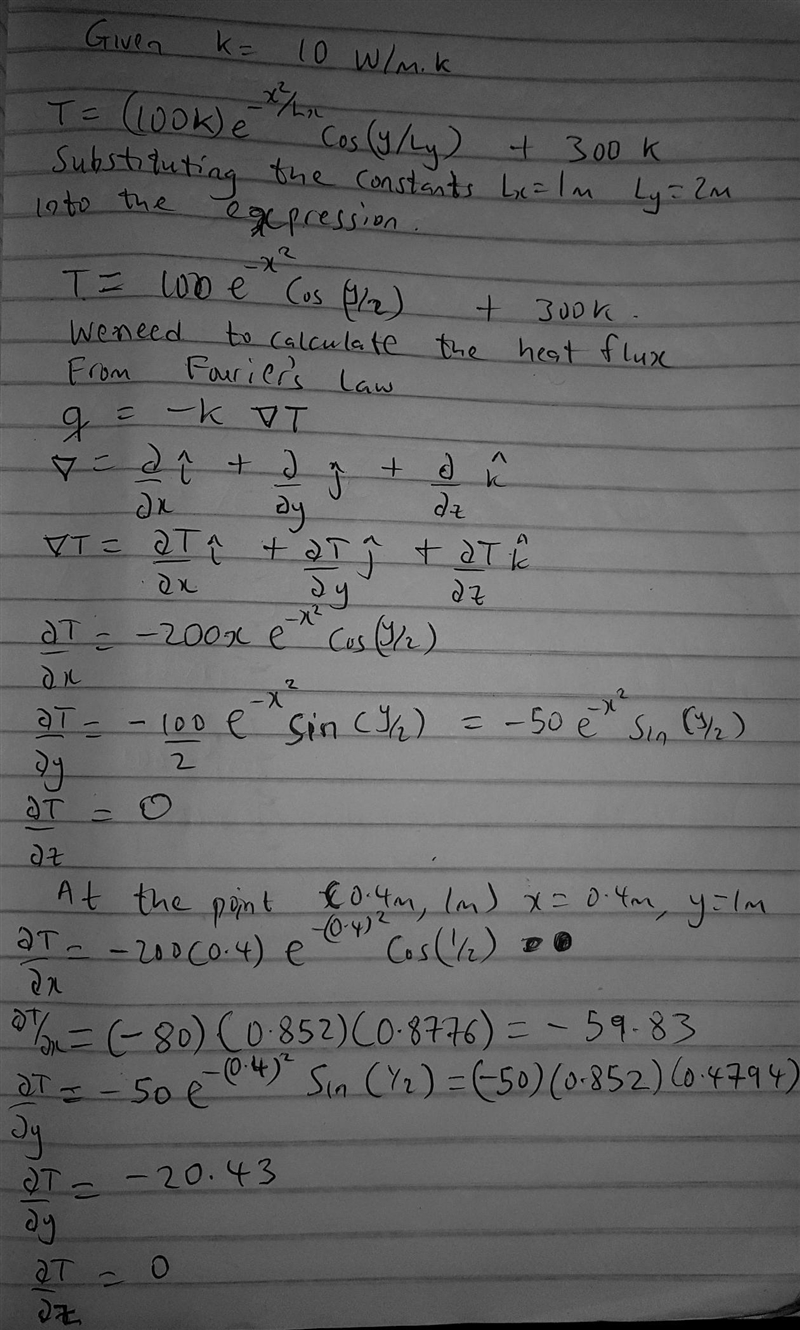 Given k = 10 W/m.k
T = (100K)e^(-x²/Lx) Cos(y/Ly) + 300 K
Substituting the constants Lx=1m Ly=2m
into the expression.
T = 100 e^(-x²) Cos (y/2) + 300k.
We need to calculate the heat flux
From Fourier's Law
q = -k ∇T
∇ = ∂/∂x î + ∂/∂y ĵ + ∂/∂z k̂
∇T = ∂T/∂x î + ∂T/∂y ĵ + ∂T/∂z k̂
∂T/∂x = -200x e^(-x²) Cos(y/2)
∂T/∂y = -100/2 e^(-x²) Sin (y/2) = -50 e^(-x²) Sin (y/2)
∂T/∂z = 0
At the point (0.4m, 1m) x = 0.4m, y=1m
∂T/∂x = -200(0.4) e^(-(0.4)²) Cos(1/2)
∂T/∂x = (-80)(0.852)(0.8776) = -59.83
∂T/∂y = -50 e^(-(0.4)²) Sin (1/2) = (-50)(0.852)(0.4794)
∂T/∂y = -20.43
∂T/∂z = 0